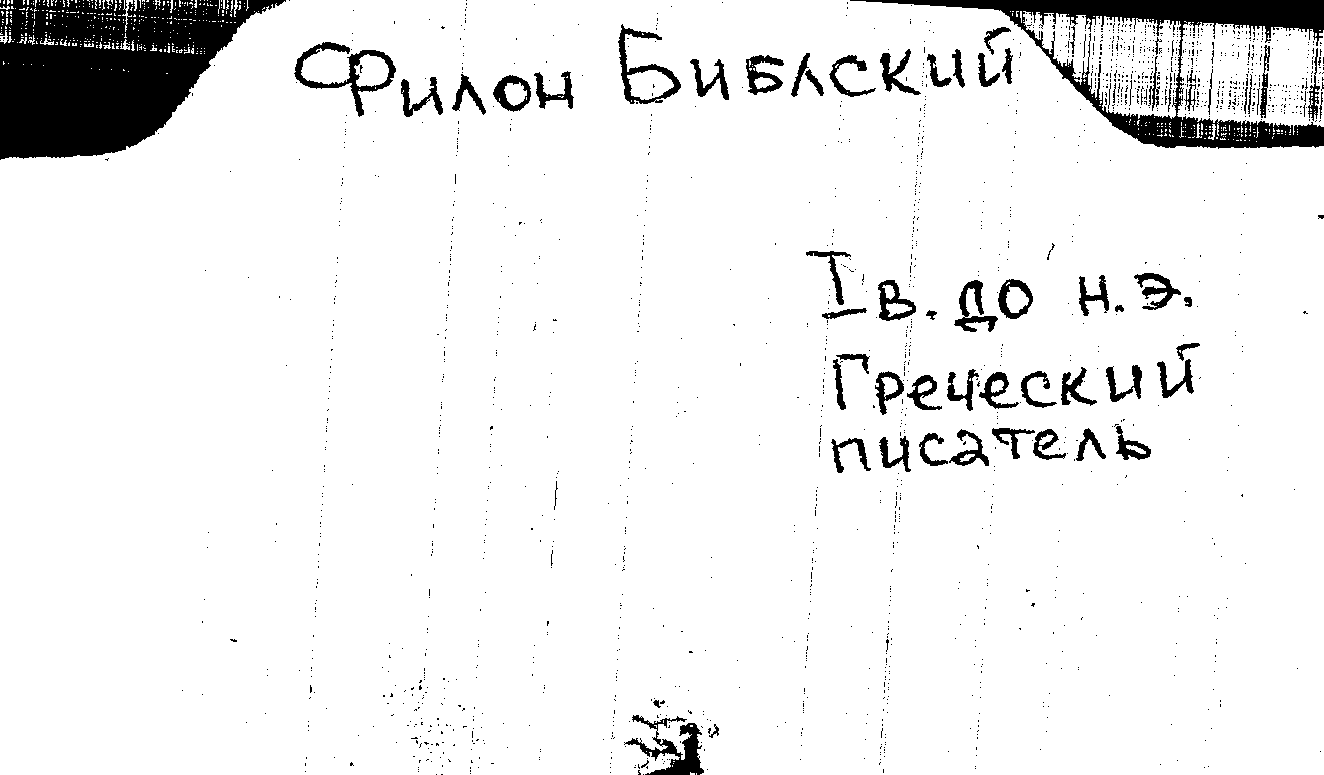 Филон Библский
I в. до н.э.
Греческий
писатель